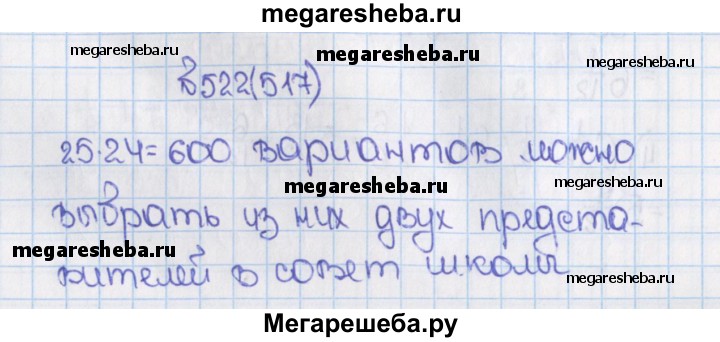 megaresheba.ru
megaresheba.ru
megaresheba.ru
522(517)
megaresheba.ru
25·24=600 вариантов можно
megaresheba.ru
выбрать из них двух предста-
megaresheba.ru
megaresheba.ru
вителей в совет школы
megaresheba.ru
Мегарешеба.ру